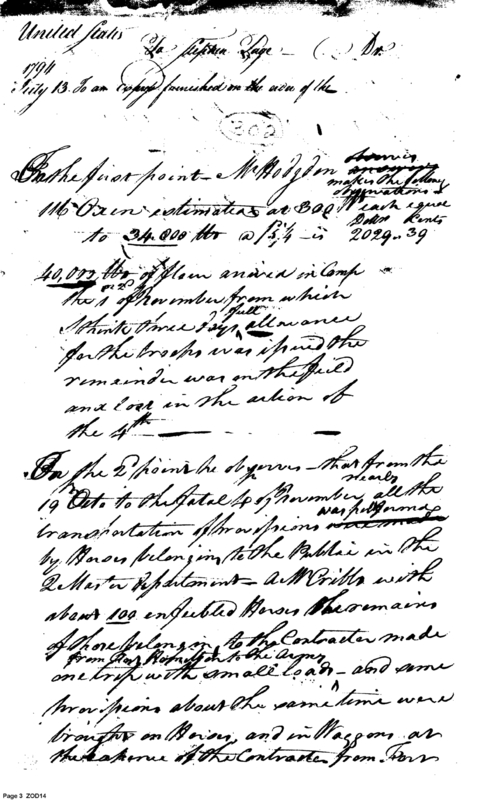 United States
To Stephen Page - ( Dr.
1794
July 13. To an express furnished on the use of the
302
On the first point - Mr Hodgdon
observes
answers
makes the following
observations
116 Oxen estimated at 300 lb each equal
Dolls Cents
to 34.000 lbs @ /5¼ - is 2029..39
40,000 lbs of flour arrived in Camp
the 1 or 2d of November from which
full
I think three days allowance
for the troops was issued the
remainder was on the field
and lost in the action of
the 4th -
On the 2d point he observes - that from the
nearly
19th Octo to the fatal 4 of November all the
was performed
transportation of provisions were made
by Horses belonging to the Public in the
QMaster department - A Mr Cribbs with
about 100 enfeebled Horses the remains
of those belonging to the Contractor made
from Fort Hamilton to the Army
one trip with small loads - and some
provisions about the same time were
brought on Horses and in Waggons at
the expence of the Contractor from Fort
Page 3 ZOD14